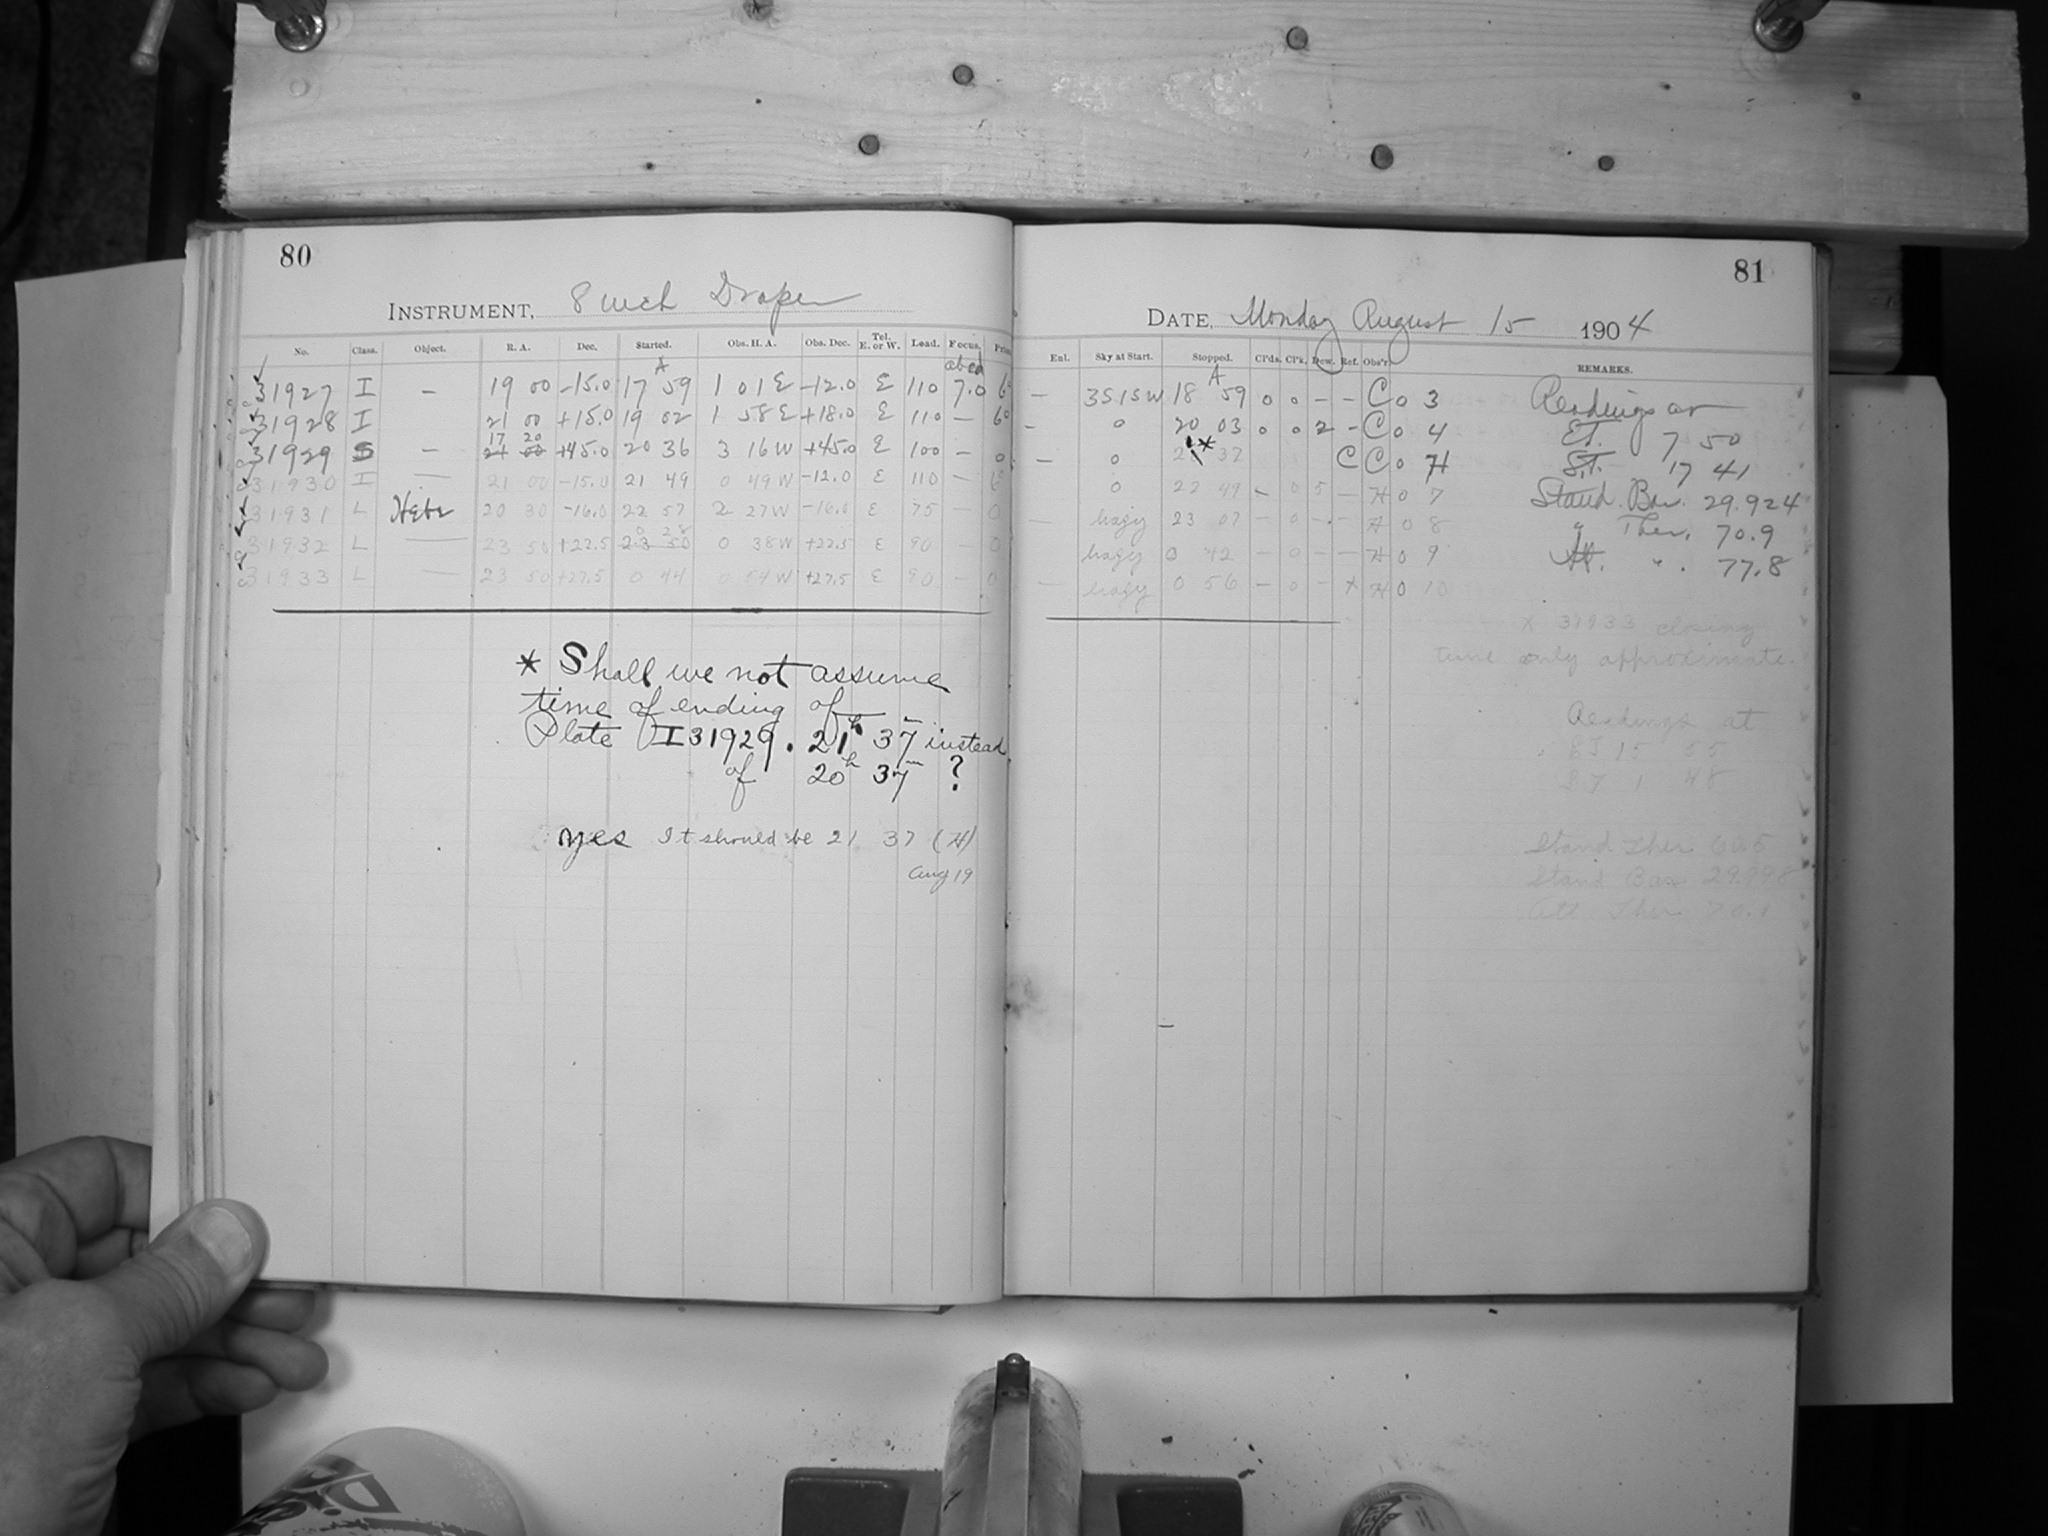 80
INSTRUMENT, 8 inch Draper
No. Class. Object. R. A. Dec. Started. Obs. H. A. Obs. Dec. Tel. E. or W. Load. Focus.
A abcd
31927 I – 19 00 –15.0 17 59 1 01 E –12.0 E 110 7.0
31928 I 21 00 +15.0 19 02 1 58 E +18.0 E 110 –
17 20
31929 S – 21 00 +45.0 20 36 3 16 W +45.0 E 100 – 0
31930 I – 21 00 –15.0 21 49 0 49 W –12.0 E 110 –
31931 L Hebe 20 30 –16.0 22 57 2 27 W –16.0 E 75 – 0
0 28
31932 L — 23 50 +22.5 23 50 0 38 W +22.5 E 90 – 0
31933 L — 23 50 +27.5 0 44 0 54 W +27.5 E 90 – 0
* Shall we not assume
time of ending of
Plate I 31929. 21h 37m instead
of 20h 37m ?
yes It should be 21 37 (H)
Aug 19
81
DATE, Monday August 15 1904
Enl. Sky at Start. Stopped. Cl'ds. Cl'k. Dew. Ref. Obs'r. REMARKS.
A
– 3515W 18 59 0 0 – – C 0 3
– 0 20 03 0 0 2 – C 0 4
– 0 * 37 C C 0 H
0 22 49 – 0 5 – H 0 7
– hazy 23 07 – 0 – – H 0 8
hazy 0 42 – 0 – – H 0 9
– hazy 0 56 – 0 – x H 0 10
Readings at
E.T. 7 50
S.T. 17 41
Stand. Bar. 29.924
" Ther. 70.9
At. " . 77.8
x 31933 closing
time only approximate.
Readings at
15 55
1 48
Stand Ther
Stand Bar 29.998
Att Ther 70.1